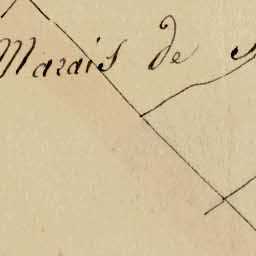 Marais de